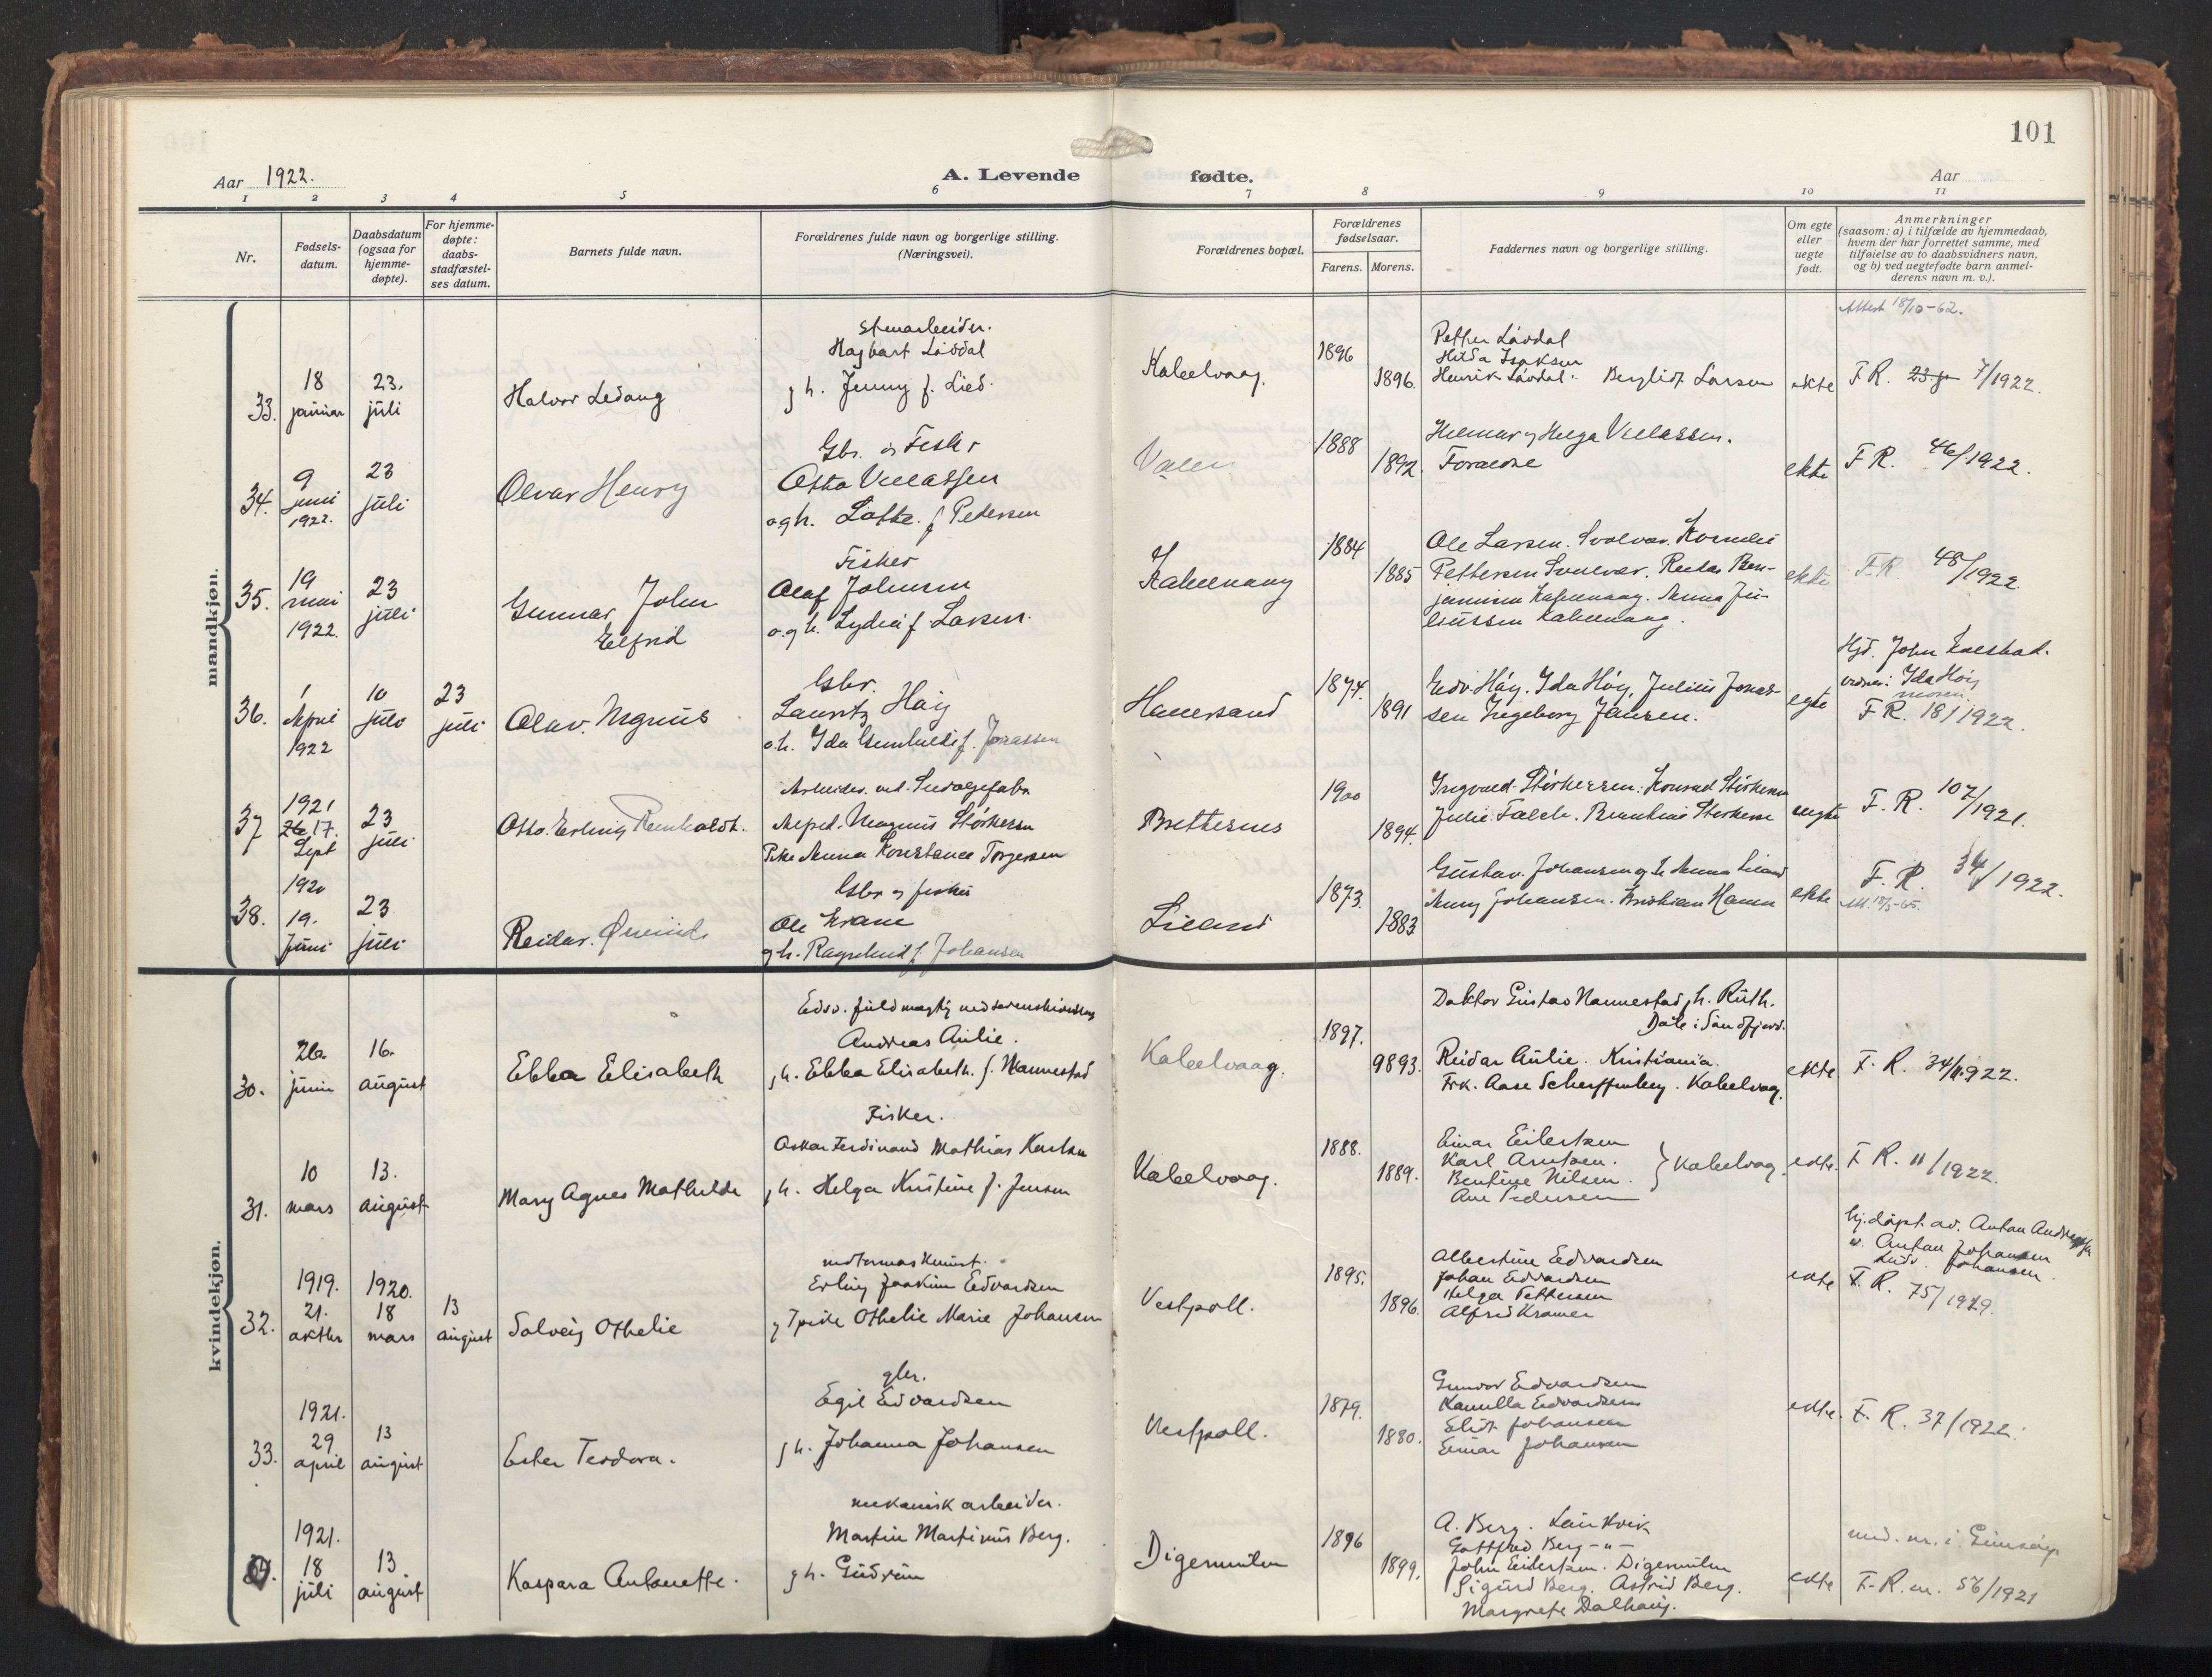 101
Aar 1922.
A. Levende fødte.
Aar
1 2 3 4 5 6 7 8 9 10 11
Nr.
Fødsels-
datum.
Daabsdatum
(ogsaa for
hjemme-
døpte).
For hjemme-
døpte:
daabs-
stadfæstel-
ses datum.
Barnets fulde navn.
Forældrenes fulde navn og borgerlige stilling.
(Næringsvei).
Forældrenes bopæl.
Forældrenes
fødselsaar.
Farens. Morens.
Faddernes navn og borgerlige stilling.
Om egte
eller
uegte
født.
Anmerkninger
(saasom: a) i tilfælde av hjemmedaab,
hvem der har forrettet samme, med
tilføielse av to daabsvidners navn,
og b) ved uegtefødte barn anmel-
derens navn m. v.).
mandkjøn.
33.
18
januar
23.
juli
Halvor Ledang
Stenarbeider.
Hagbart Lövdal
g h. Jenny f. Lied.
Kabelvaag.
1896
1896.
Petter Lövdal
Hilda Isaksen
Henrik Lövdal. Berglist Larsen
ekte
Attest 18/10-62.
F R. 7/1922.
34.
9
juni
1922.
23
juli
Olvar Henry
Gbr. og Fisker
Otto
ogh. Lotte. f Pedersen
1888
1892.
Helmar og Helga
Foraeldre
ekte
F R. 46/1922.
35.
19
mai
1922.
23
juli
Gunnar John
Eilfrid
Fisker
Olaf Johnsen
o.g h. Lydia f. Larsen.
Kabelvaag
1884
1885
Ole Larsen. Svolvær.
Pettersen Svolvær. Reidar Ben-
jaminsen Kabelvaag. Anna Ju-
liussen Kabelvaag.
ekte
F.R. 48/1922.
36.
1
April
1922
10
23
juli
Olav. Magnus
Gbr.
Lauritz Høig
o.h. Ida f. Jonassen
1874.
1891
Edv. Høig. Ida Høig, Julius Jonas-
sen Ingeborg Jansen.
egte
Hjd. John
Ida Høig
F R. 18/1922.
37
1921
17.
Sept
23
juli
Otto. Erling Reinholdt.
Arbeider. ved.
Alfred. Magnus Størkersen
Pike Anna Konstance Torgersen
Brettesnes
1900
1894.
Ingvald Störkersen. Konrad Störkersen
Julie Falch. Størkersen
uegte
F. R. 107/1921.
38.
1920
19.
juni
23
juli
Reidar. Øivind.
Gbr og fisker
Ole
gh. Ragnhild f. Johansen
Liland
1873.
1883
Gustav. Johansen og h. Anna Liland
Johansen. Kristian Hansen
ekte
F. R. 34/1922.
kvindekjøn.
30.
26.
juni
16.
august
Ebba Elisabeth
Edsv. fuldmægtig ved sorenskriveren
Andreas Aulie.
g h. Ebba Elisabeth. f. Nannestad
Kabelvaag.
1897.
9893.
Doktor Gustav Nannestad g h. Ruth.
Dale i Søndfjord.
Reidar Aulie. Kristiania.
Frk. Aase Scherffenberg. Kabelvag.
ekte
F. R. 34/1922.
31.
10
mars
13.
august
Mary Agnes Mathilde
Fisker.
Oskar Ferdinand Mathias Karlsen
g h. Helga Kristine f. Jensen
Kabelvaag.
1888.
1889.
Einar Eilertsen
Karl Arntsen.
Bentine Nilsen.
Ane Pedersen
Kabelvag.
ekte.
F R. 11/1922.
32.
1919.
21.
oktbr
1920.
18
mars
13
august
Solveig Othelie
motormaskinist.
Erling Joakim Edvardsen
g Tpike Othelie Marie Johansen
Vestpoll.
1895.
1896.
Albertine Edvardsen
Johan Edvardsen
Helga Pettersen
Alfred Kramer
ekte
hj. döpt. av. Anton
v. Anton Johansen
Ludv. Johansen.
F. R. 75/1929.
33.
1921.
29
april
13
august
Ester Teodora.
gbr.
Egil Edvardsen
g h. Johanna Johansen
Vestpoll.
1879.
1880.
Gunvor Edvardsen
Kamilla Edvardsen
Johansen
Einar Johansen
ekte.
F. R. 37/1922.
34.
1921.
18
juli
13
august
Kaspara Antonette.
mekanisk arbeider.
Martin Martinus Berg.
g h. Gudrun
Digermulen
1896
1899.
A. Berg. Laukvik
Gottfred Berg -"-
John Eilertsen. Digermulen
Sigurd Berg. Astrid Berg.
Margrete Dalhaug.
ekte
med. nr. i Gimsøy
F. R. nr. 56/1921